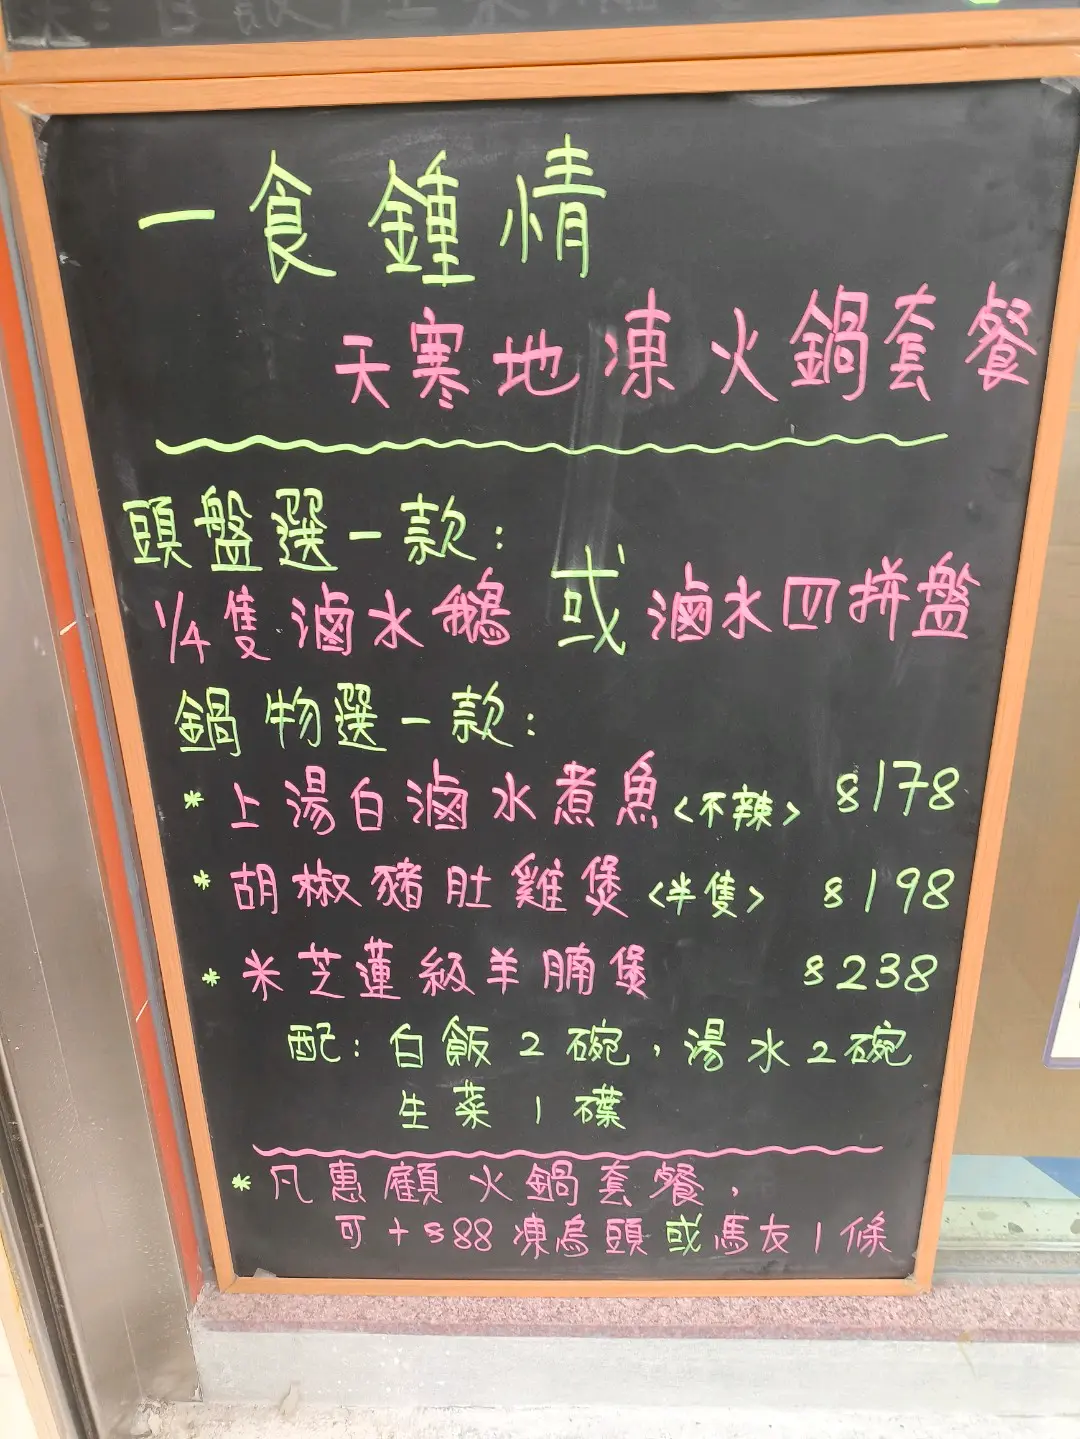 一食鍾情
天寒地凍火鍋套餐
頭盤選一款：
1/4隻滷水鵝 或 滷水四拼盤
鍋物選一款：
* 上湯白滷水煮魚<不辣> $178
* 胡椒豬肚雞煲<半隻> $198
* 米芝蓮級羊腩煲 $238
配：白飯2碗，湯水2碗
生菜1碟
* 凡惠顧火鍋套餐，
可+$88凍烏頭或馬友1條